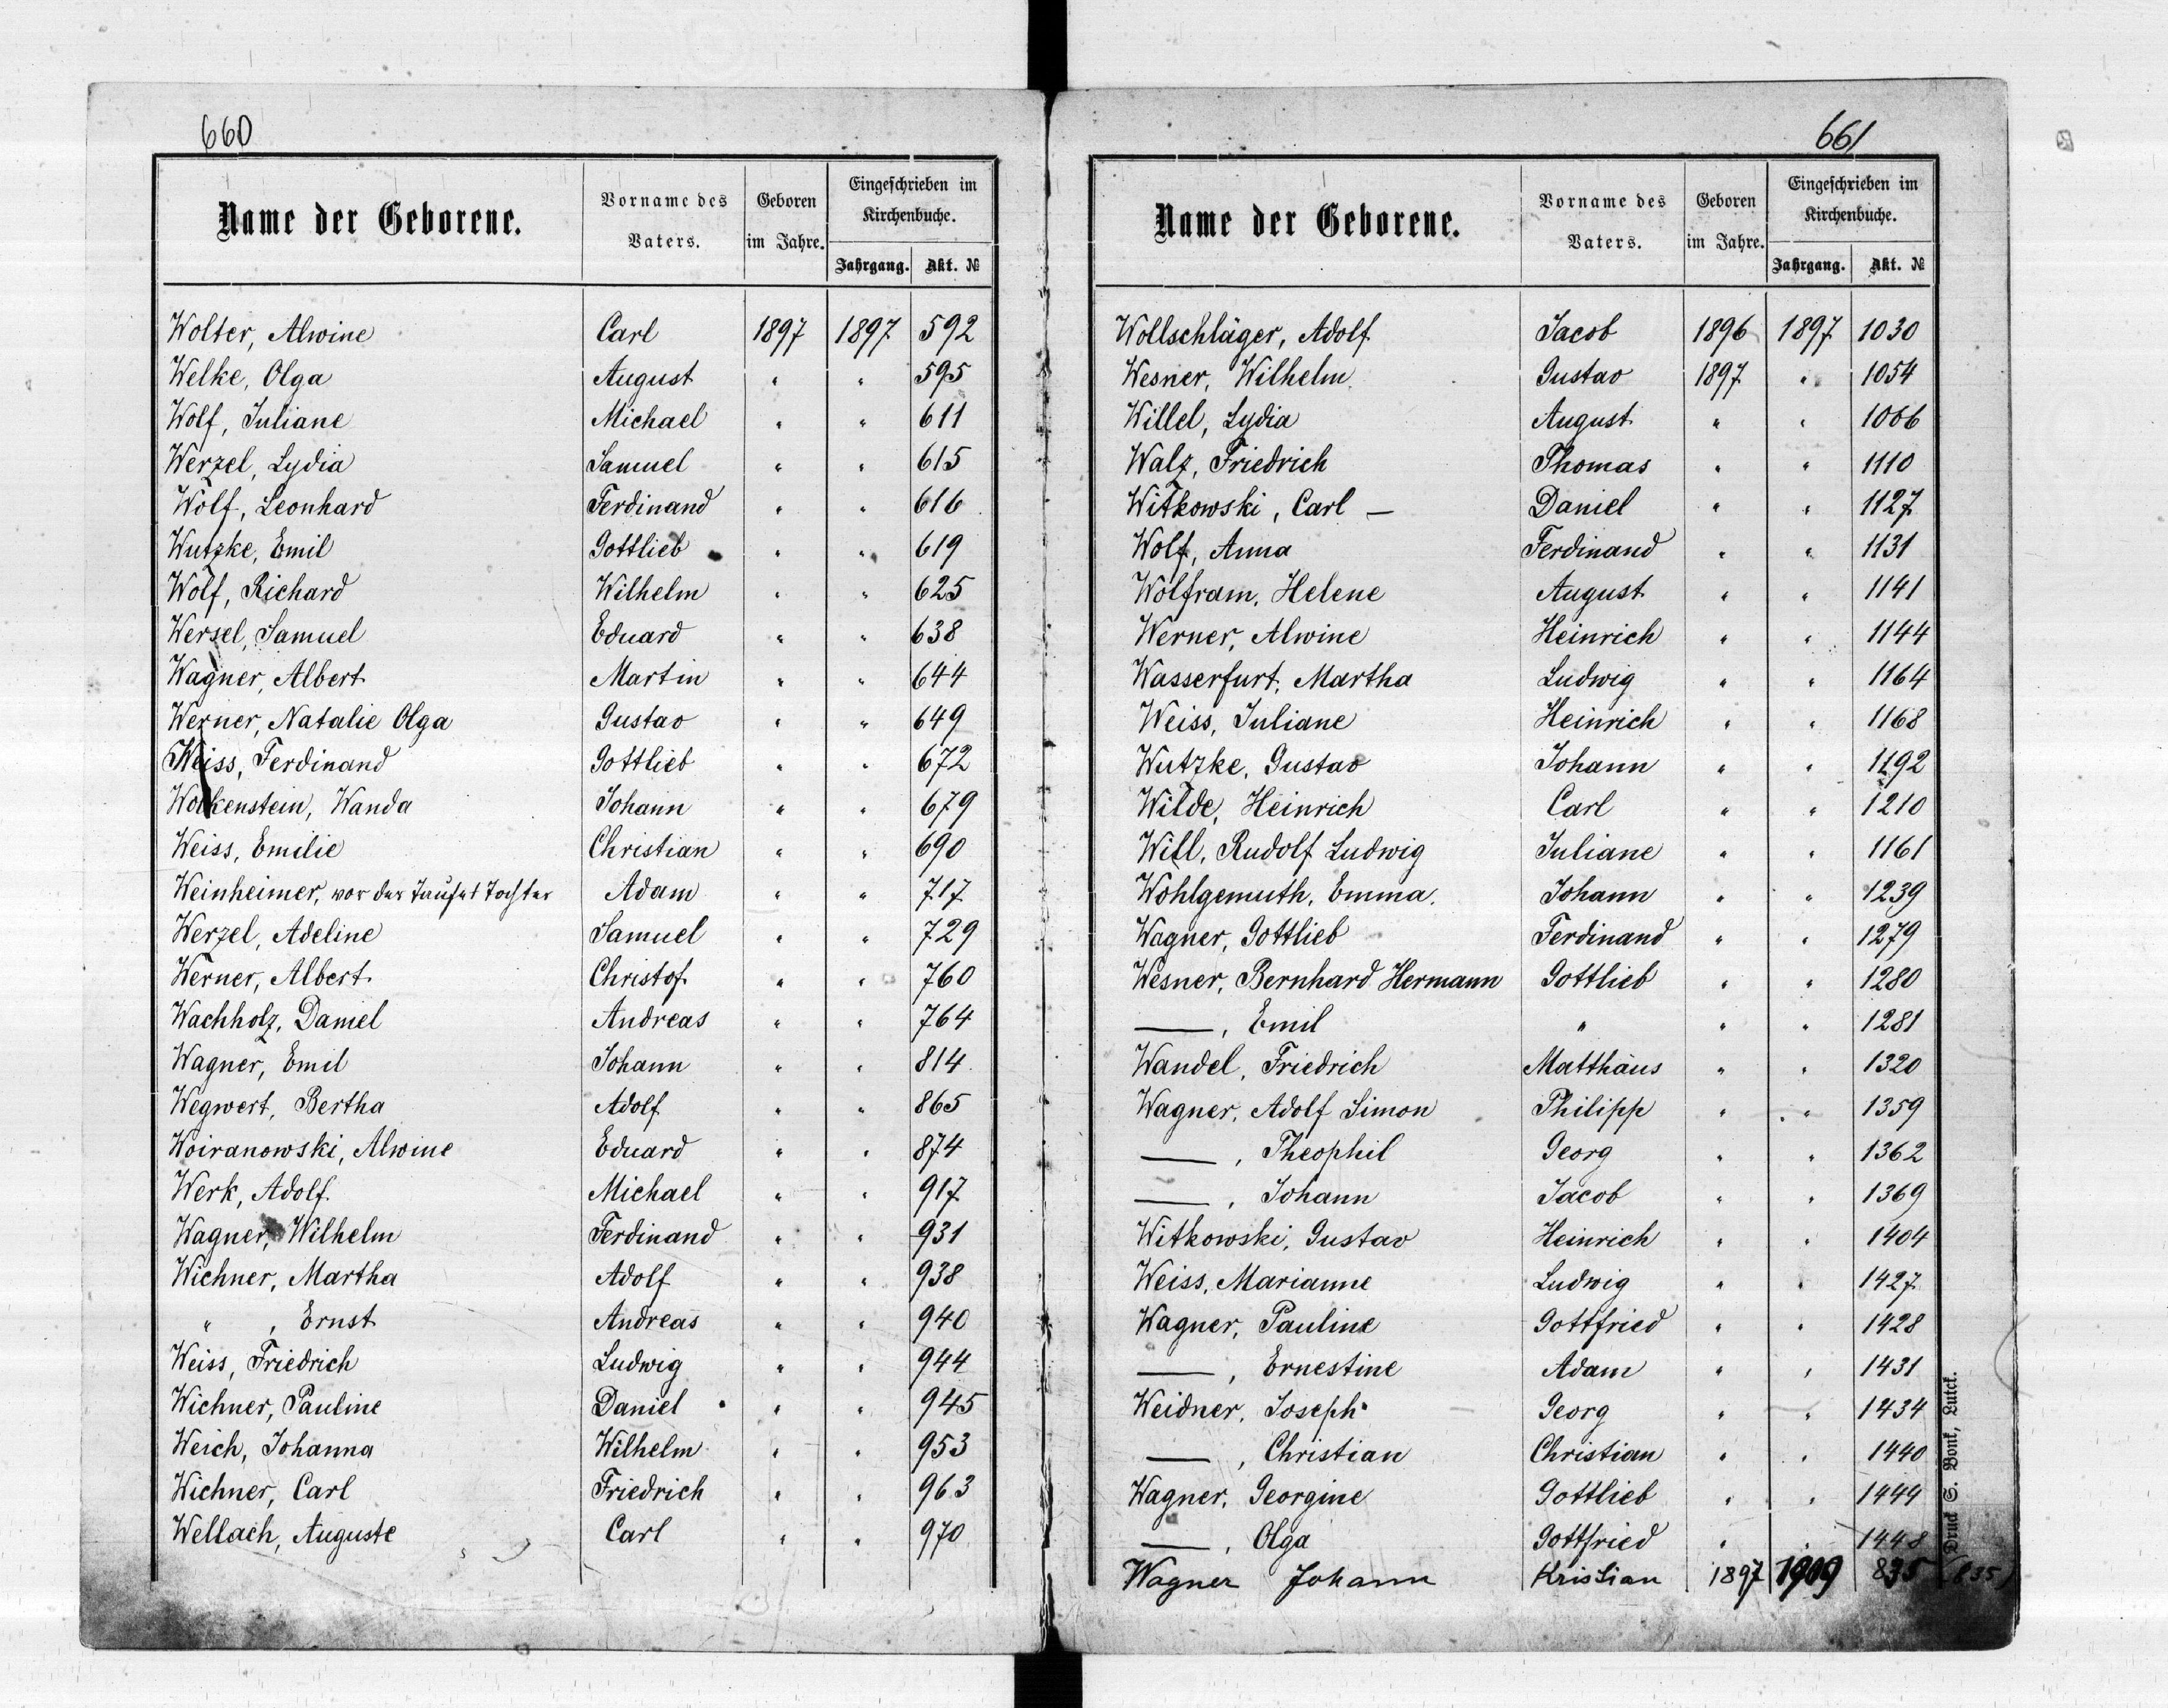 660
Name der Geborene.
Vorname des Vaters.
Geboren im Jahre.
Eingeschrieben im Kirchenbuche.
Jahrgang. Akt. №
Wolter, Alwine Carl 1897 1897 592
Welke, Olga August " " 595
Wolf, Juliane Michael " " 611
Werzel, Lydia Samuel " " 615
Wolf, Leonhard Ferdinand " " 616
Wutzke, Emil Gottlieb " " 619
Wolf, Richard Wilhelm " " 625
Wersel, Samuel Eduard " " 638
Wagner, Albert Martin " " 644
Werner, Natalie Olga Gustav " " 649
Weiss, Ferdinand Gottlieb " " 672
Wolkenstein, Wanda Johann " " 679
Weiss, Emilie Christian " " 690
Weinheimer, vor der Taufe + Tochter Adam " " 717
Werzel, Adeline Samuel " " 729
Werner, Albert Christof " " 760
Wachholz, Daniel Andreas " " 764
Wagner, Emil Johann " " 814
Wegwert, Bertha Adolf " " 865
Woiranowski, Alwine Eduard " " 874
Werk, Adolf Michael " " 917
Wagner, Wilhelm Ferdinand " " 931
Wichner, Martha Adolf " " 938
" , Ernst Andreas " " 940
Weiss, Friedrich Ludwig " " 944
Wichner, Pauline Daniel " " 945
Weich, Johanna Wilhelm " " 953
Wichner, Carl Friedrich " " 963
Wellach, Auguste Carl " " 970
661
Name der Geborene.
Vorname des Vaters.
Geboren im Jahre.
Eingeschrieben im Kirchenbuche.
Jahrgang. Akt. №
Wollschläger, Adolf Jacob 1896 1897 1030
Wesner, Wilhelm Gustav 1897 " 1054
Willel, Lydia August " " 1066
Walz, Friedrich Thomas " " 1110
Witkowski, Carl — Daniel " " 1127
Wolf, Anna Ferdinand " " 1131
Wolfram, Helene August " " 1141
Werner, Alwine Heinrich " " 1144
Wasserfurt, Martha Ludwig " " 1164
Weiss, Juliane Heinrich " " 1168
Wutzke, Gustav Johann " " 1192
Wilde, Heinrich Carl " " 1210
Will, Rudolf Ludwig Juliane " " 1161
Wohlgemuth, Emma. Johann " " 1239
Wagner, Gottlieb Ferdinand " " 1279
Wesner, Bernhard Hermann Gottlieb " " 1280
——, Emil " " " 1281
Wandel, Friedrich Matthäus " " 1320
Wagner, Adolf Simon Philipp " " 1359
——, Theophil Georg " " 1362
——, Johann Jacob " " 1369
Witkowski, Gustav Heinrich " " 1404
Weiss, Marianne Ludwig " " 1427
Wagner, Pauline Gottfried " " 1428
——, Ernestine Adam " " 1431
Weidner, Joseph Georg " " 1434
——, Christian Christian " " 1440
Wagner, Georgine Gottlieb " " 1444
——, Olga Gottfried " " 1448
Wagner Johann Kristian 1897 1909 835 (835)
Druck S. Bonk, Lutck.